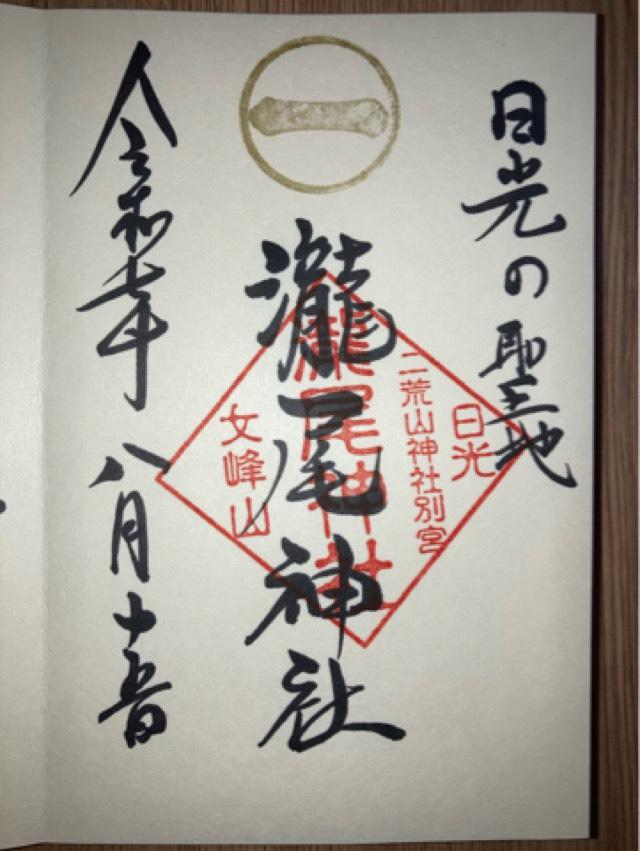 日光の聖地
一
瀧尾神社
日光
二荒山神社別宮
瀧尾神社
女峰山
令和七年八月十五日